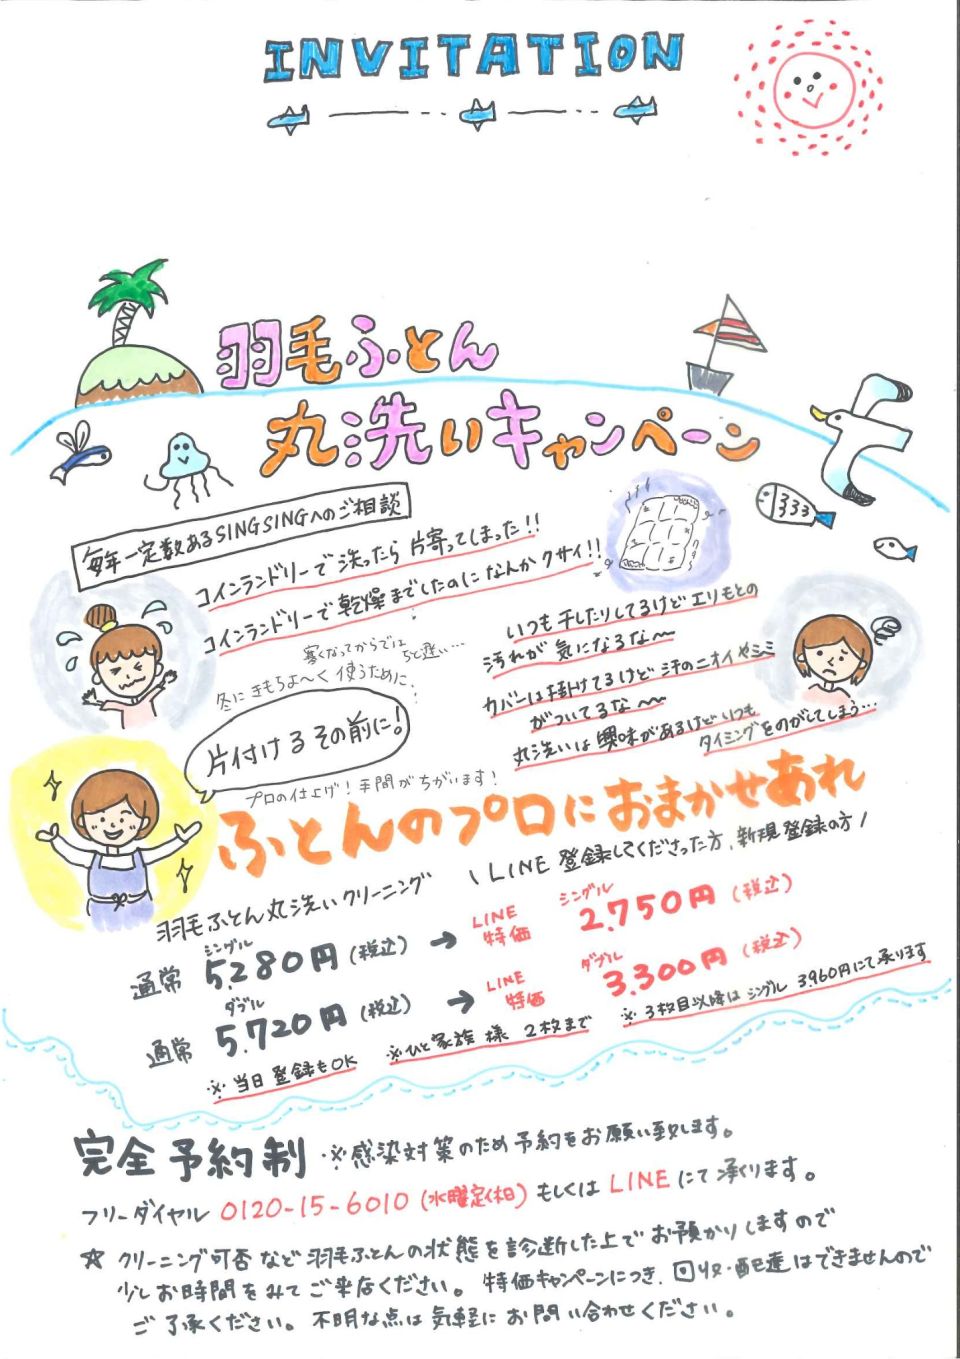 INVITATION
羽毛ふとん
丸洗いキャンペーン
毎年一定数あるSINGSINGへのご相談
コインランドリーで洗ったら片寄ってしまった!!
コインランドリーで乾燥までしたのになんかクサイ!!
いつも干したりしてるけどエリもとの
汚れが気になるな〜
カバーは掛けてるけど汗のニオイやシミ
がついてるな〜
丸洗いは興味があるけどいつも
タイミングをのがしてしまう…
寒くなってからでは
ちと遅い…
冬にきもちよ〜く使うために…
片付けるその前に!
プロの仕上げ!手間がちがいます!
ふとんのプロにおまかせあれ
\ LINE登録してくださった方、新規登録の方 /
羽毛ふとん丸洗いクリーニング
シングル
通常 5,280円(税込) → LINE特価 シングル 2,750円(税込)
ダブル
通常 5,720円(税込) → LINE特価 ダブル 3,300円(税込)
※当日登録もOK ※ひと家族様 2枚まで ※3枚目以降はシングル3,960円にて承ります
完全予約制 ※感染対策のため予約をお願い致します。
フリーダイヤル 0120-15-6010(水曜定休日)もしくはLINEにて承ります。
☆ クリーニング可否など羽毛ふとんの状態を診断した上でお預かりしますので
少しお時間をみてご来店ください。特価キャンペーンにつき、回収・配達はできませんので
ご了承ください。不明な点は気軽にお問い合わせください。